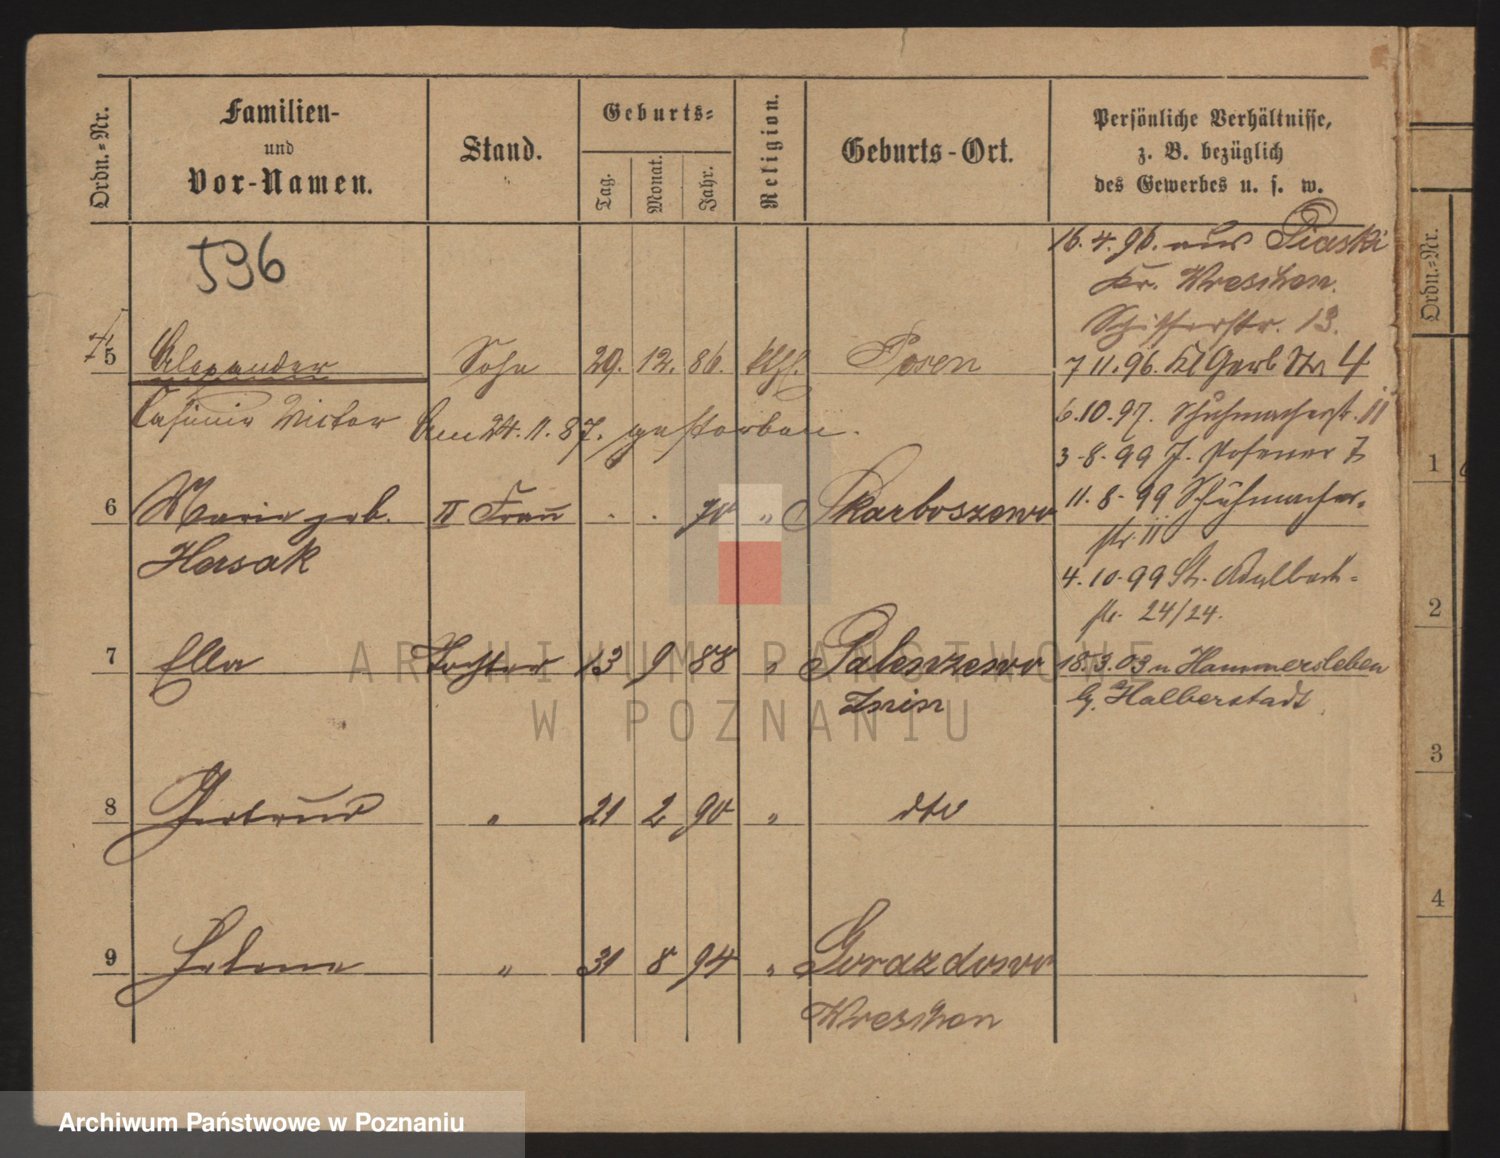 Ordn.-Nr.
Familien-
und
Vor-Namen.
Stand.
Geburts-
Tag.
Monat.
Jahr.
Religion.
Geburts-Ort.
Persönliche Verhältnisse,
z. B. bezüglich
des Gewerbes u. s. w.
Ordn.-Nr.
536
16. 4. 96. aus Piaski
Kr. Wreschen.
Schifferstr. 13.
5 Alexander Sohn 29. 12. 86. kth. Posen
7 11. 96. Kl Gerb Str 4
Casimir Victor Am 24. 11. 87. gestorben.
6. 10. 97. Schuhmacherst. 11
3. 8. 99 J. Posener 7
6 Marie geb. II Frau . . 70 " Skarboszewo
Hersak
11. 8. 99 Schuhmacher-
str. 11
4. 10. 99 St. Adalbert-
str. 24/24.
7 Ella Tochter 13 9 88 " Palenzewo
Znin
18. 3. 03 n Hammersleben
b. Halberstadt
8 Gertrud " 21 2 90 " dto
9 Helene " 31 8 94 " Gorazdowo
Wreschen
1
2
3
4
ARCHIWUM PAŃSTWOWE
W POZNANIU
Archiwum Państwowe w Poznaniu